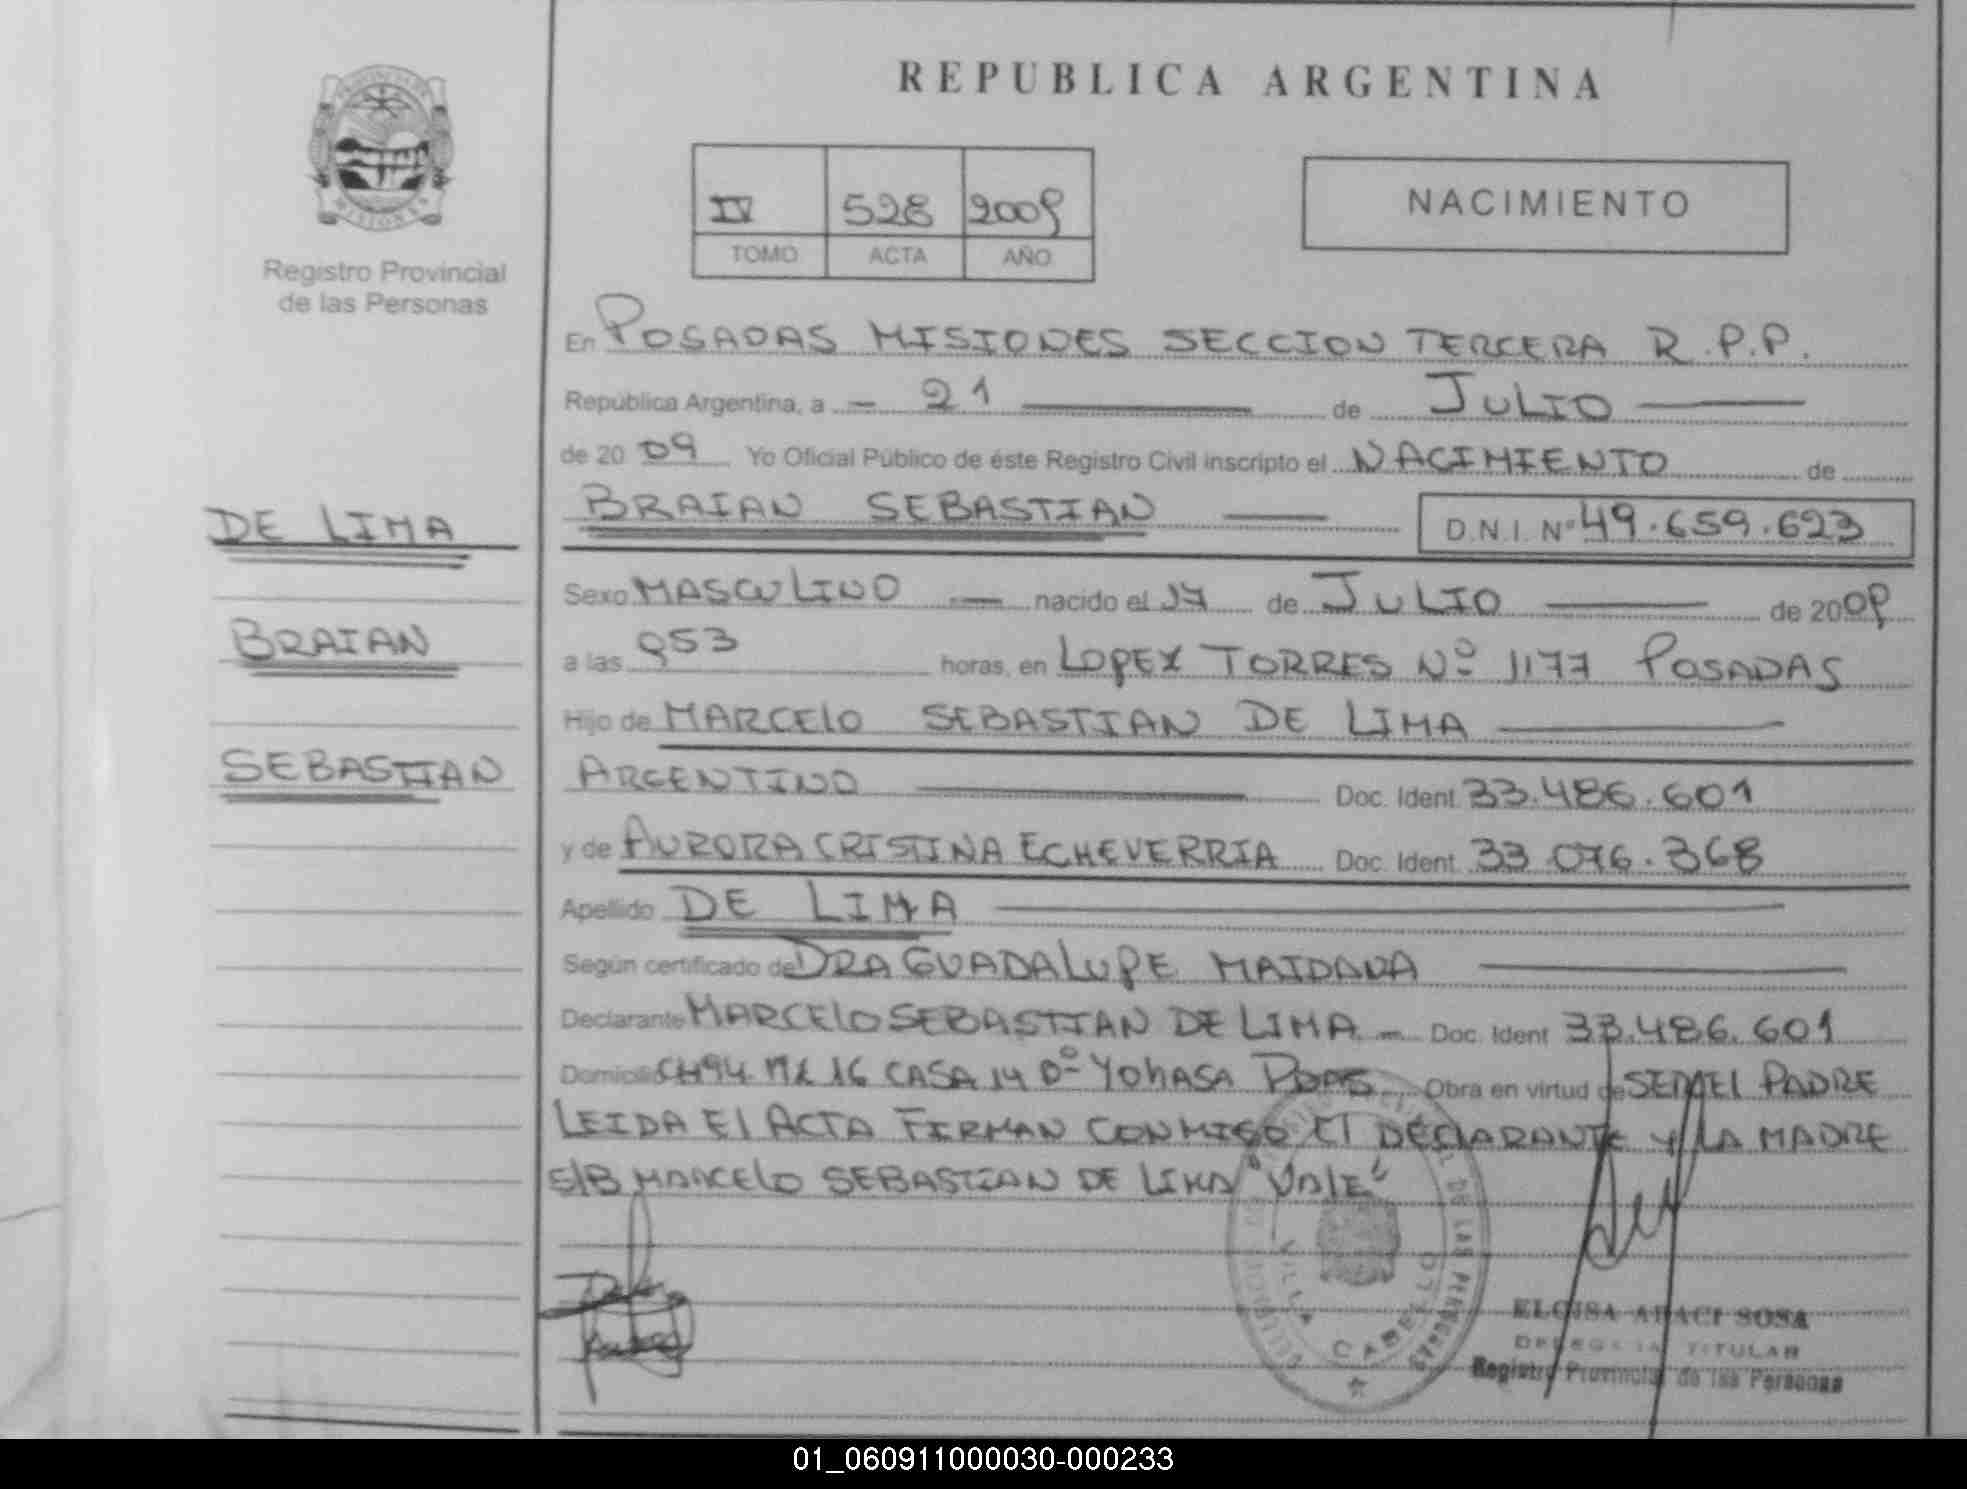 REPUBLICA ARGENTINA
PROVINCIA DE MISIONES
Registro Provincial
de las Personas
IV 528 2009
TOMO ACTA AÑO
NACIMIENTO
En POSADAS MISIONES SECCION TERCERA R.P.P.
República Argentina, a 21 de JULIO
de 20 09 Yo Oficial Público de éste Registro Civil inscripto el NACIMIENTO de
BRAIAN SEBASTIAN D.N.I. Nº 49.659.623
DE LIMA
BRAIAN
SEBASTIAN
Sexo MASCULINO nacido el 17 de JULIO de 2009
a las 953 horas, en LOPEZ TORRES Nº 1177 POSADAS
Hijo de MARCELO SEBASTIAN DE LIMA
ARGENTINO Doc. Ident. 33.486.601
y de AURORA CRISTINA ECHEVERRIA Doc. Ident. 33.076.368
Apellido DE LIMA
Según certificado de DRA GUADALUPE MAIDANA
Declarante MARCELO SEBASTIAN DE LIMA Doc. Ident 33.486.601
Domicilio CH94 MZ 16 CASA 14 Bº YOHASA PDAS Obra en virtud de SER EL PADRE
LEIDA El ACTA FIRMAN CONMIGO El DECLARANTE Y LA MADRE
S/B MARCELO SEBASTIAN DE LIMA "VALE"
VILLA CABELLO
ELOISA ARACI SOSA
DELEGADA TITULAR
Registro Provincial de las Personas
01_060911000030-000233